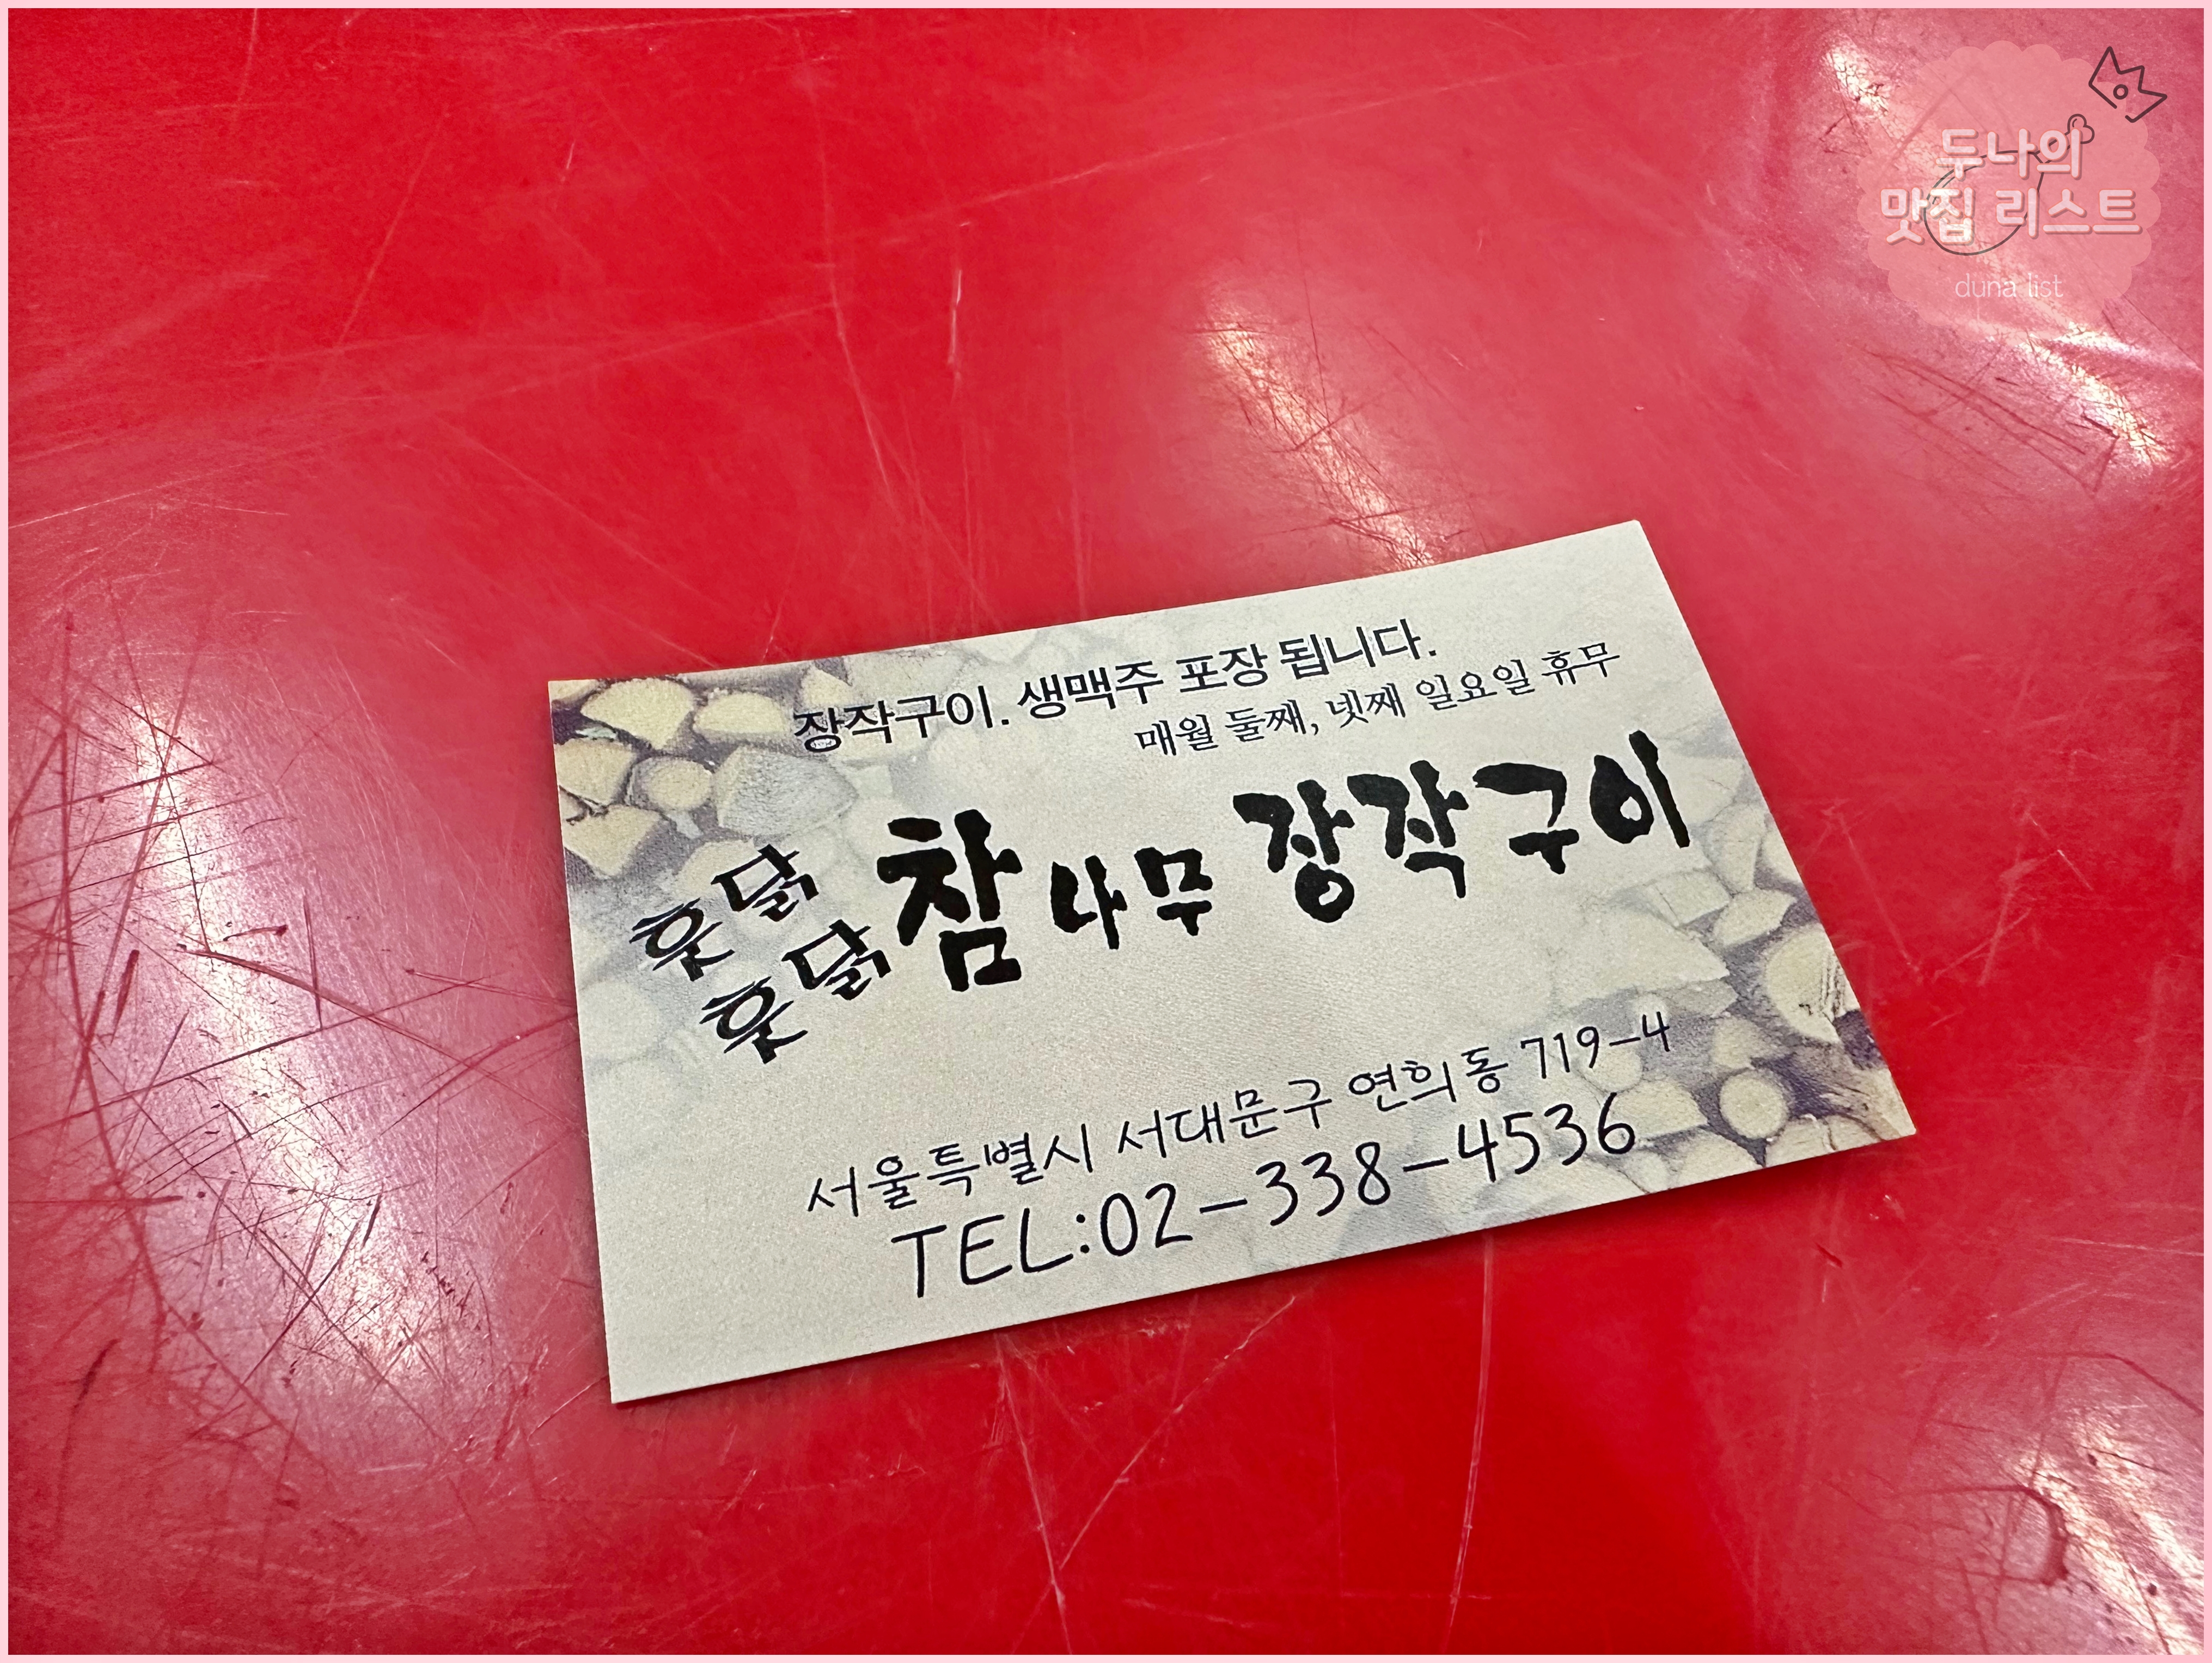 두나의
맛집 리스트
duna list
장작구이. 생맥주 포장 됩니다.
매월 둘째, 넷째 일요일 휴무
훗닭
훗닭
참나무 장작구이
서울특별시 서대문구 연희동 719-4
TEL:02-338-4536